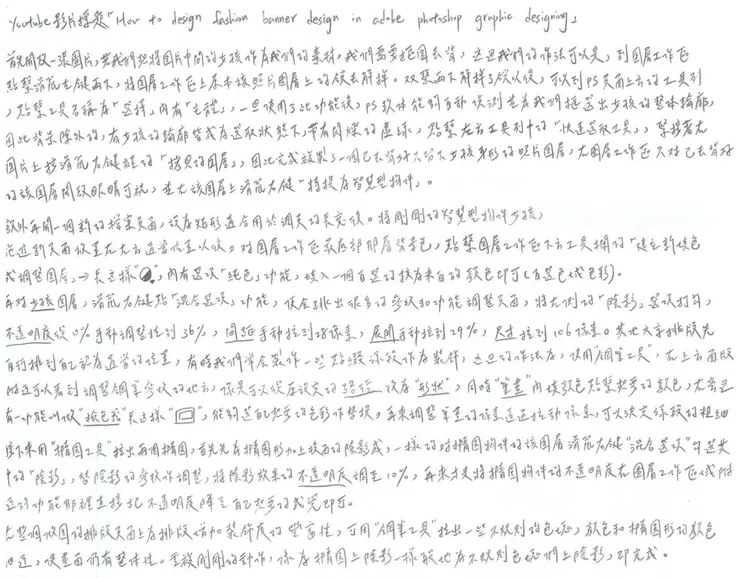 Youtube影片標題「How to design fashion banner design in adobe photoshop graphic designing」
首先開啟一張圖片,若我們想將圖片中間的女孩作為我們的素材,我們需要把圖去背,這邊我們的作法可以是,到圖層工作區
點擊滑鼠左鍵兩下,將圖層工作區上原本該照片圖層上的鎖去解鎖。双擊兩下解鎖了鎖以後,可以到PS頁面上方的工具列
,點擊工具名稱為"選擇,內有"主體",一旦使用了此功能後,PS軟體能夠自動偵測並為我們框選出女孩的整体輪廓,
因此背景除外的,有女孩的輪廓皆成為選取狀態下,帶有閃爍的虛線,點擊左方工具列中的"快速選取工具",緊接著在
圖片上按滑鼠右鍵裡的"拷貝的圖層",因此完成效果了一個已去背好只留下女孩身形的照片圖層,在圖層工作區只对已去背好
的該圖層開啟眼睛可視,並在該圖層上滑鼠右鍵"轉換為智慧型物件"。
額外再開一個新的檔案頁面,設為矩形適合用於網頁的長寬後。將剛剛的智慧型物件女孩,
拖進新頁面位置在左方適當位置以後。对圖層工作區最底部那層背景色,點擊圖層工作區下方工具欄的"建立新填色
或調整圖層,→長這樣"◐",內有選項"純色"功能,填入一個自選的較为亮目的顏色即可(自選色或色彩)。
再对女孩圖層,滑鼠右鍵點"混合選項"功能,後会跳出很多的參數和功能調整頁面,將左側的"陰影"選項打勾,
不透明度從0%手動調整拉到36%,間距手動拉到28像素,展開手動拉到29%,尺寸拉到106像素。其他文字排版先
自行排到自己認為適當的位置,有時我們常会製作一些點綴線段作為裝飾,這邊的作法為,使用"鋼筆工具",在上方面版
附近可以看到調整鋼筆參數的地方,像是可以從左設定的路徑 改為"形狀",同時"筆畫"內填顏色點擊想要的顏色,尤當還
有一功能叫做"檢色器"長這樣"▭",能夠選自己想要的色彩作替換。再來調整筆畫的像素透過拉動像素,可以決定線段的粗細
接下來用"橢圓工具"拉出兩個橢圓,首先先為橢圓形加上後面的陰影感,一樣的对橢圓物件的該圖層滑鼠右鍵"混合選項"勾選其
中的"陰影",替陰影的參數作調整,將陰影效果的不透明度調至10%,再來才是將橢圓物件的不透明度在圖層工作區域附
近的功能那裡直接把不透明度降至自己想要的感覺即可。
在整個版面的排版頁面上为排版增加裝飾度的豐富性,可用"鋼筆工具"拉出一些不規則的色塊,顏色和橢圓形的顏色
相近,使畫面仍有整体性。重複剛剛的動作,像为橢圓上陰影一樣般地为不規則色塊們上陰影,即完成。